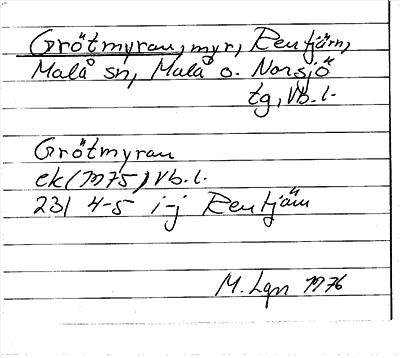 Grötmyran, myr, Rentjärn,
Malå sn, Malå o. Norsjö
tg, Vb.l.
Grötmyran
ek (1975) Vb.l.
23I 4-5 i-j Rentjärn
M. Lgn 1976